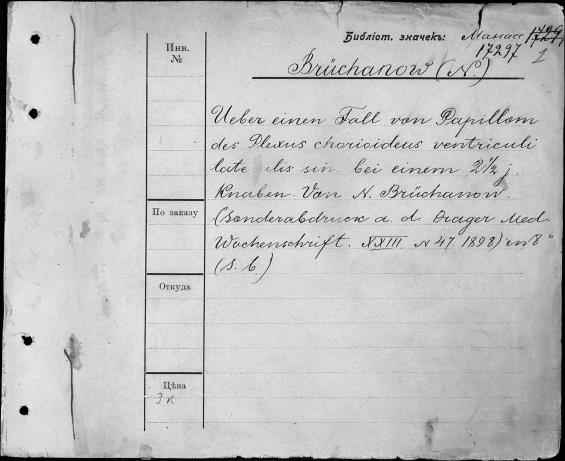 Библіот. значекъ: Манас 17291
17297 1
Инв.
№
Brüchanow (N.)
Ueber einen Fall von Papillom
des Plexus chorioideus ventriculi
late lis sin. bei einem 2½ j.
Knaben. Von N. Brüchanow.
(Sonderabdruck a. d. Prager Med.
Wochenschrift. XXIII N 47. 1898) in 8°
(S. 6.)
По заказу
Откуда
Цѣна
3 к